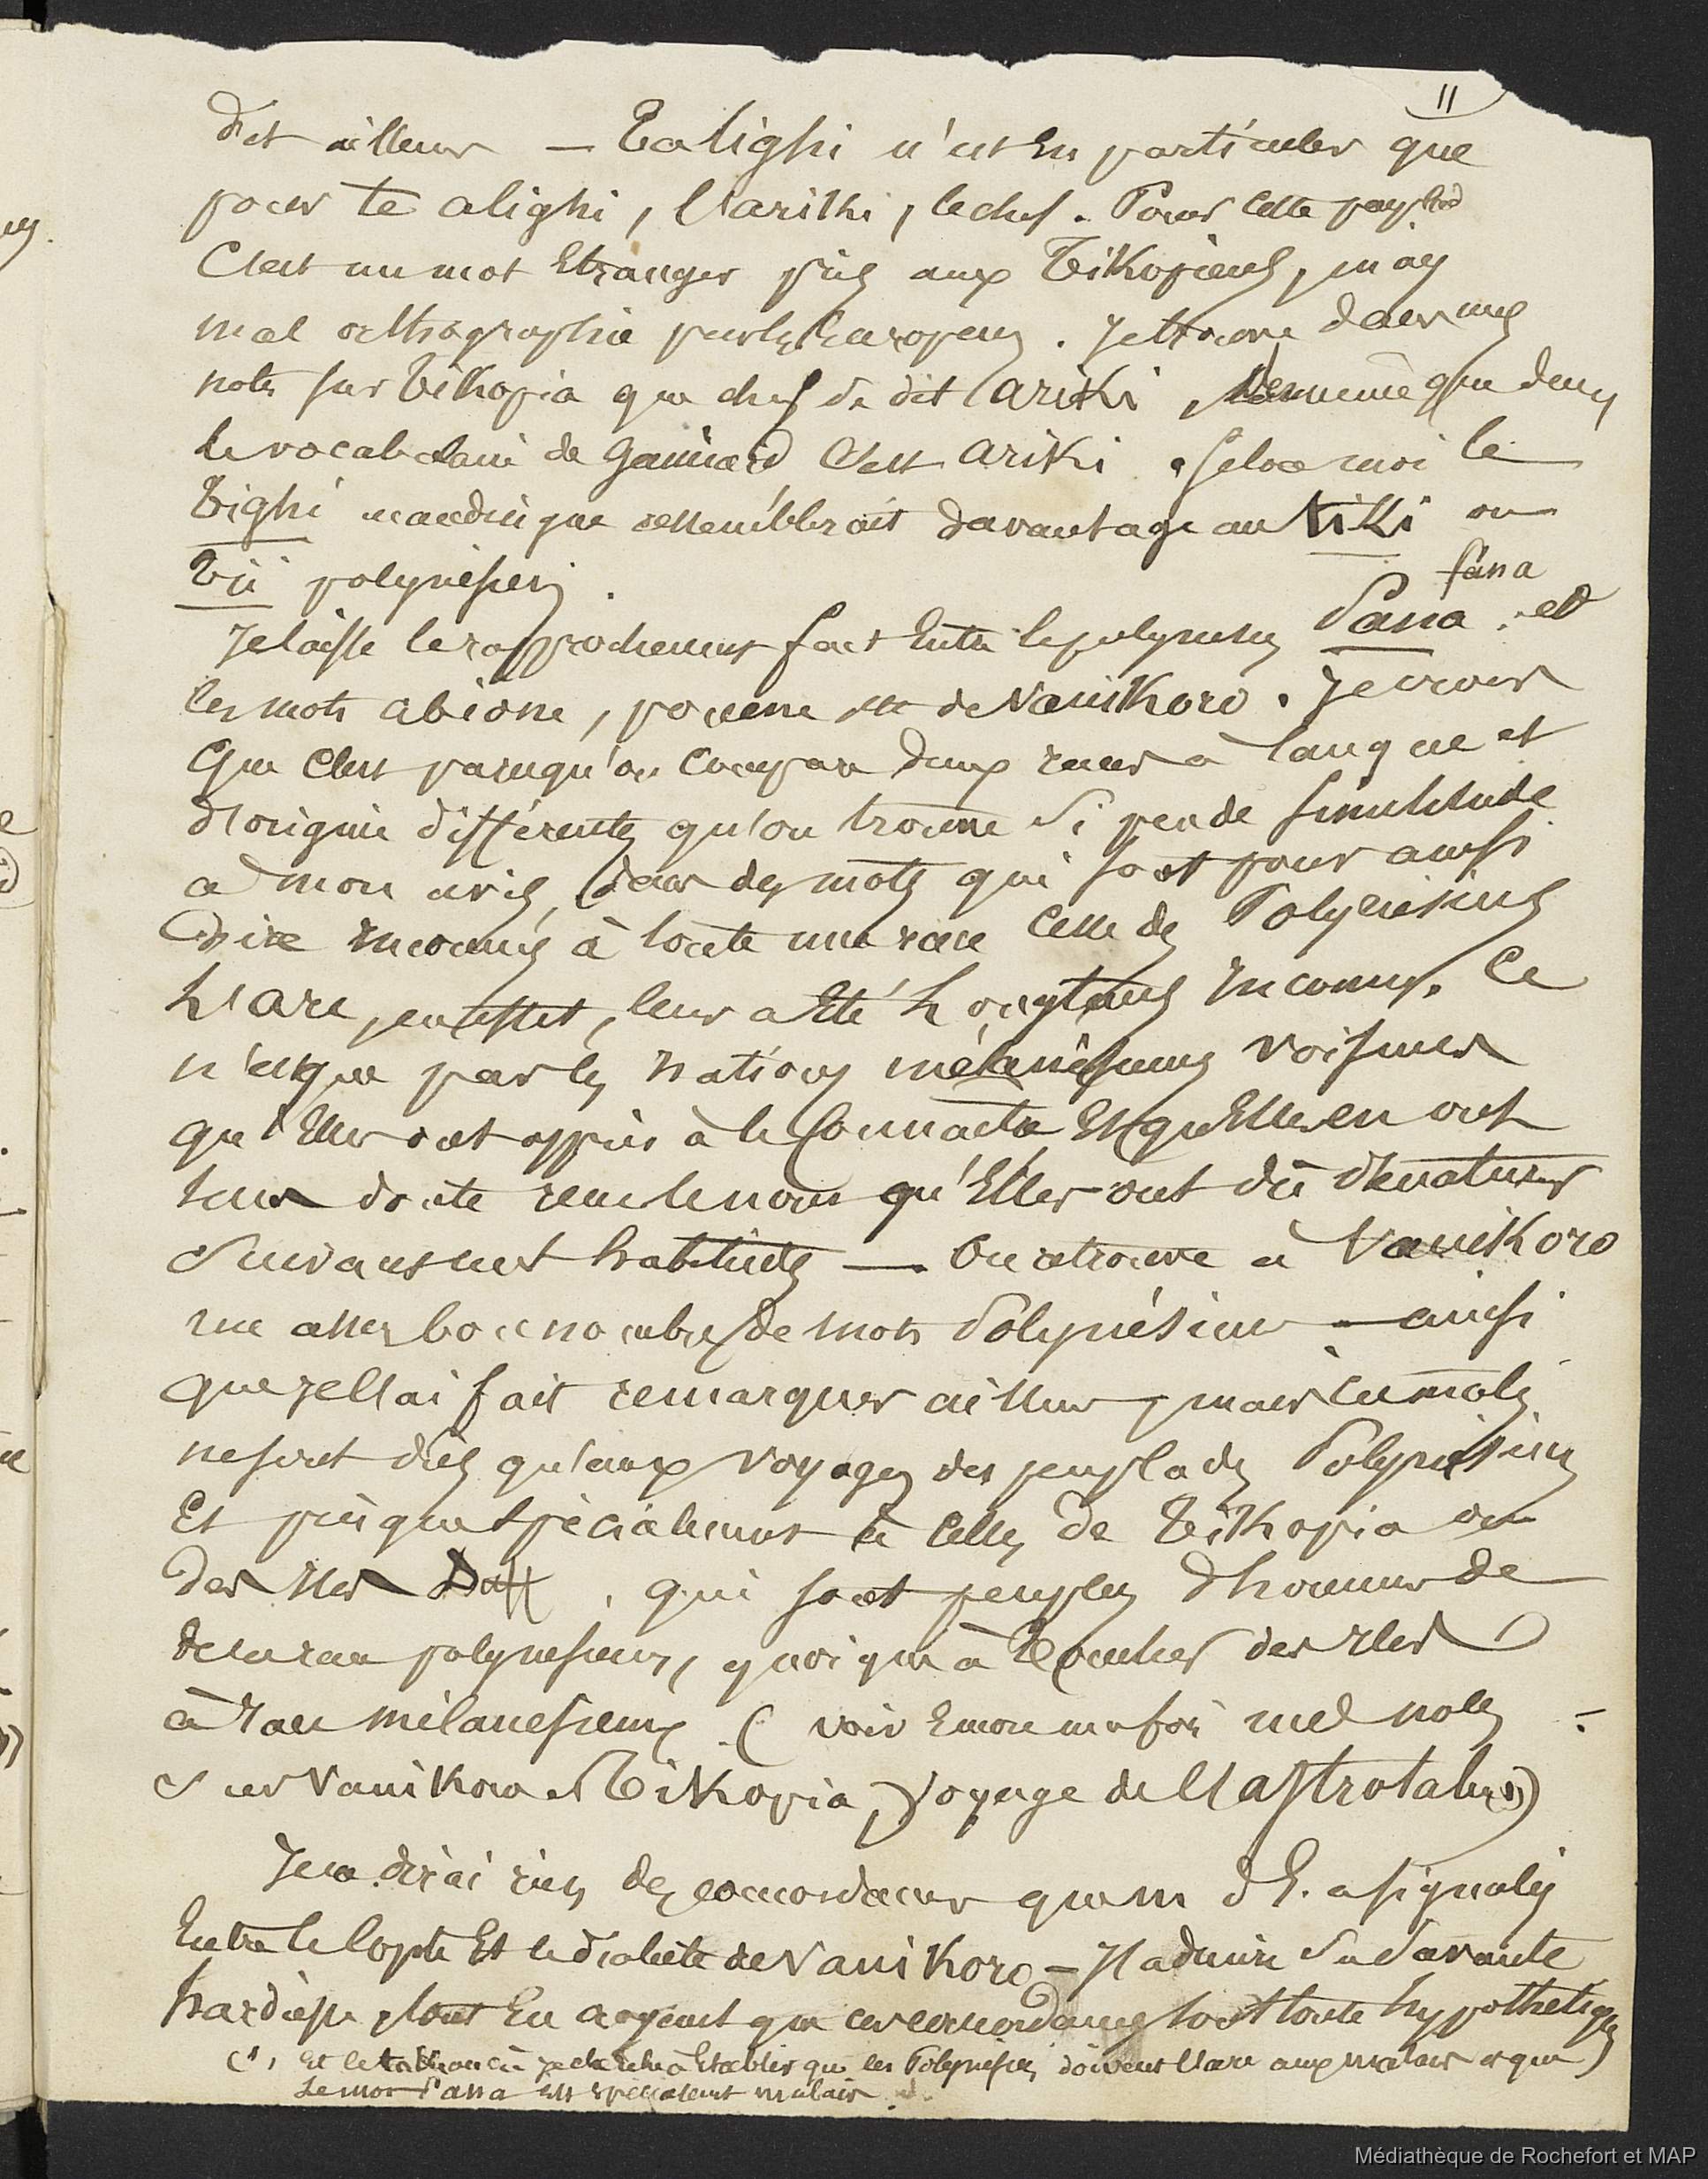 11
dit ailleurs — Talighi n'est en particulier que
pour te alighi, l'ariki, le chef. Pour cette
C'est un mot étranger pris aux Tikopiens, mais
mal orthographié par les Européens. Je trouve dans mes
notes sur Tikopia que chef se dit ariki, de même que dans
le vocabulaire de Gaimard c'est ariki. Selon moi le
Tighi mandingue ressemblerait davantage au tiki ou
Tii polynésien.
fana
Je laisse le rapprochement fait entre le polynésien Pana et
les mots abione, pouene etc de Vanikoro. Je crois
que c'est parcequ'on compare deux races à langue et
d'origine différentes qu'on trouve si peu de similitude
à mon avis, dans des mots qui sont pour ainsi
dire inconnus à toute une race celle des Polynésiens
L'arc, en effet, leur a été longtems inconnu. Ce
n'est que par les nations mélanésiennes voisines
qu'elles ont appris à le connaître et qu'elles en ont
sans doute reçu le nom qu'elles ont dû dénaturer
suivant habitudes — On retrouve à Vanikoro
un assez bon nombre de mots Polynésiens — ainsi
que je l'ai fait remarquer ailleurs, mais ces mots
ne sont dûs qu'aux voyages des peuplades Polynésiennes
et presque spécialement à celles de Tikopia ou
des îles Duff, qui sont peuplées d'hommes de
de la race polynésienne, quoique à toucher des îles
à race mélanésienne. (voir mes notes
sur Vanikoro et Tikopia, Voyage de l'astrolabe (1))
Je ne dirai rien des concordances que M d'E. a signalés
Entre le Copte et le dialecte de Vanikoro — J'admire sa savante
hardiesse, tout en croyant que ces concordances sont toute hypothétiques
(1) à établir que les Polynésiens doivent l'arc aux malais et que
le mot Pana est spécialement malais.
Médiathèque de Rochefort et MAP